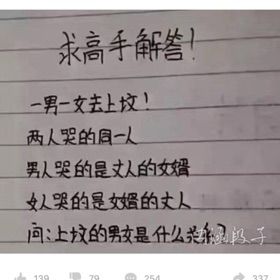 求高手解答!
一男一女去上坟!
两人哭的同一人
男人哭的是丈人的女婿
女人哭的是女婿的丈人
问:上坟的男女是什么关系?
段子
139
79
254
337